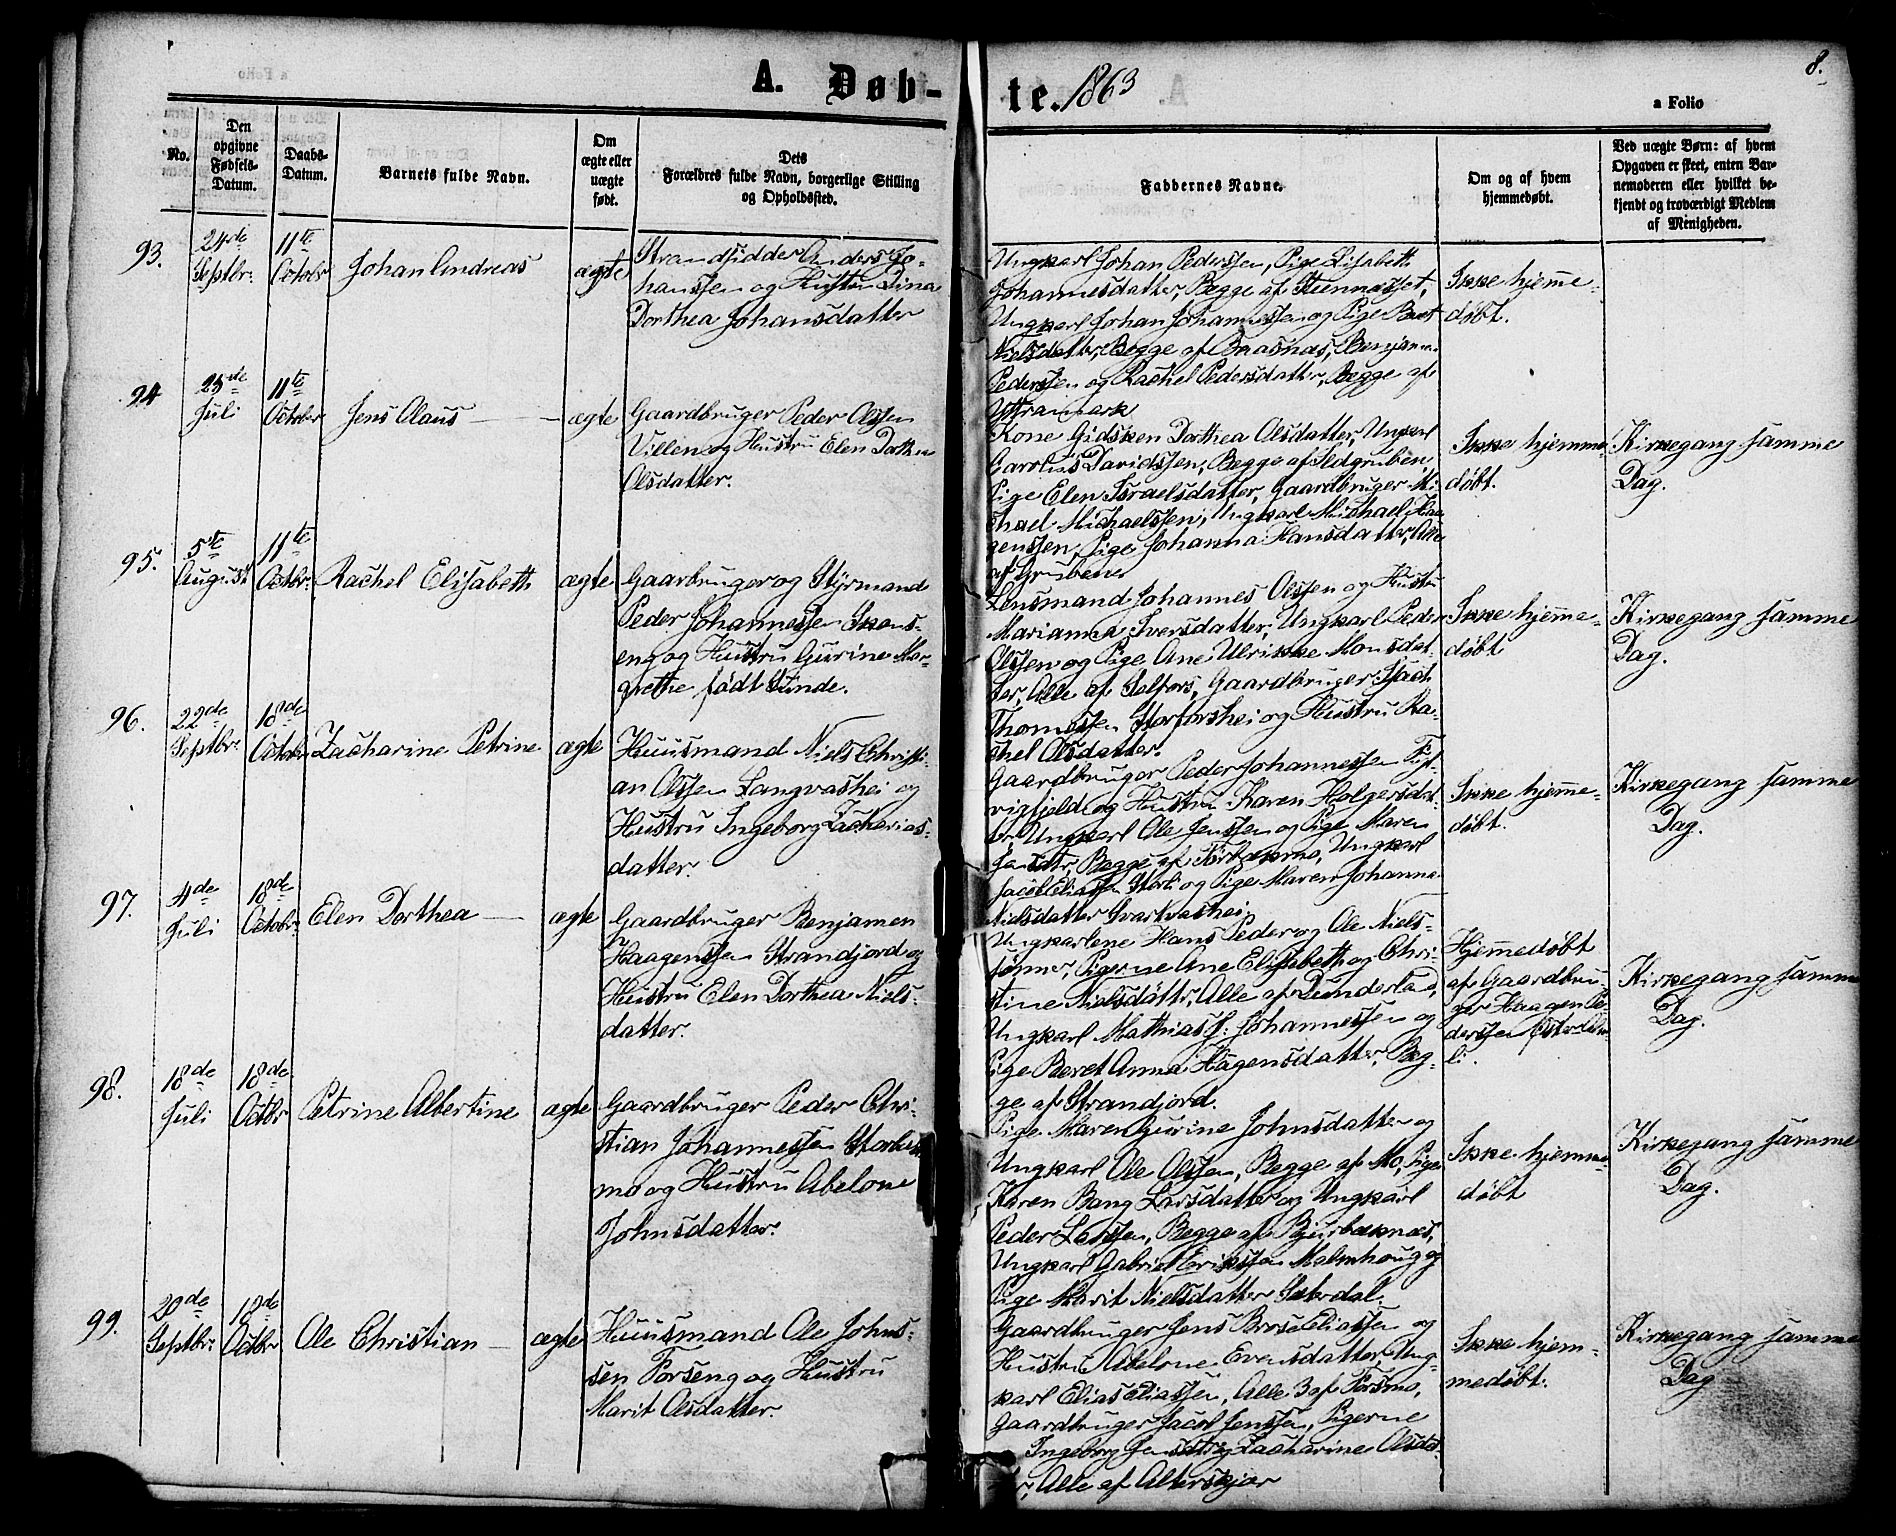 8.
A. Døb-
te. 1863
a Folio
No.
Den
opgivne
Fødsels-
Datum.
Daabs-
Datum.
Barnets fulde Navn.
Om
ægte eller
uægte
født.
Dets
Forældres fulde Navn, borgerlige Stilling
og Opholdssted.
Faddernes Navne.
Om og af hvem
hjemmedøbt.
Ved uægte Børn: af hvem
Opgaven er skeet, enten Bar-
nemoderen eller hvilket be-
kjendt og troværdigt Medlem
af Menigheden.
93.
24de
Septbr:
11te
Octobr
Johan Andreas
ægte
Strandsidder Anders Jo-
hanssen og Hustru Dina
Dorthea Johansdatter
Ungkarl Johan Pederssen, Pige Lisabeth
Johannesdatter, Begge af Steennæsset,
Ungkarl Johan Johannessen og Pige Beret
Nielsdatter, Begge af Baasnæs, Benjamin
Pederssen og Rachel Pedersdatter, Begge af
Yttramark
Ikke hjemme-
døbt.
94
25de
Juli
11te
October
Jens Olaus
ægte
Gaardbruger Peder Olssen
Villen og Hustru Elen Dorthea
Olsdatter.
Kone Gidsken Dorthea Olsdatter, Ungkarl
Carolus Davidssen, Begge af Sedgruben,
Pige Elen Israelsdatter, Gaardbruger Mi-
chael Michaelssen, Ungkarl Michael Haa-
genssen, Pige Johanna Hansdatter, Alle
af Grubene
Ikke hjemme-
døbt.
Kirkegang samme
Dag.
95.
5te
August
11te
Octbr:
Rachel Elisabeth
ægte
Gaarbruger og Styrmand
Peder Johannessen Skons-
eng og Hustru Gurine Mar-
grethe født Zinde.
Lensmand Johannes Olssen og Hustru
Marianna Iversdatter, Ungkarl Peder
Olssen og Pige Ane Ulrikke Monsdat-
ter, Alle af Selfors, Gaardbruger Isach
Thomessen Storforshei og Hustru Ra-
chel Olsdatter.
Ikke hjemme-
døbt
Kirkegang samme
Dag.
96.
22de
Septbr:
18de
Octobr:
Zacharine Petrine
ægte
Huusmand Niels Christi-
an Olssen Langvashei og
Hustru Ingeborg Zacharias-
datter.
Gaardbruger Peder Johannessen Figl-
vigfjeld og Hustru Karen Holgersdat-
ter, Ungkarl Ole Jenssen og Pige Maren
Jensdttr, Begge af Tørbækmo, Ungkarl
Jacob Eliassen Storli og Pige Maren Johanna
Nielsdatter Svartvashei
Ikke hjemme-
døbt.
Kirkegang samme
Dag.
97.
4de
Juli
18de
Octobr:
Elen Dorthea
ægte
Gaardbruger Benjamen
Haagenssen Strandjord og
Hustru Elen Dorthea Niels-
datter.
Ungkarlene Hans Peder og Ole Niels-
sønner, Pigerne Ane Elisabeth og Chri-
stine Nielsdøttr, Alle af Dunderland,
Ungkarl Mathias J: Johannessen og
Pige Beret Anna Hagensdatter, Beg-
ge af Strandjord.
Hjemmedøbt
af Gaardbru-
ger Haagen Pe-
derssen
li.
Kirkegang samme
Dag.
98.
18de
Juli
18de
Octbr
Petrine Albertine
ægte
Gaardbruger Peder Chri-
stian Johannessen Storbæk-
mo og Hustru Abelone
Johnsdatter.
Pige Maren Gurine Johnsdatter og
Ungkarl Ole Olssen, Begge af Mo, Pige
Karen Bang Larsdatter og Ungkarl
Peder Larssen, Begge af Bjurbæknæs,
Ungkarl Gabriel Erikssen Malmhoug og
Pige Marit Nielsdatter Sæterdal.
Ikke hjemme-
døbt
Kirkegang samme
Dag.
99.
20de
Septbr:
18de
Octbr
Ole Christian
ægte
Huusmand Ole Johns-
sen Forseng og Hustru
Marit Olsdatter.
Gaardbruger Jens Brose Eliassen og
Hustru Abelone Evensdatter, Ung-
karl Elias Eliassen, Alle 3 af Forsmo,
Gaardbruger Jacob Jenssen, Pigerne
Ingeborg Jensdttr og Zacharine Olsdat-
ter, Alle af Alterskjær
Ikke hjem-
medøbt.
Kirkegang samme
Dag